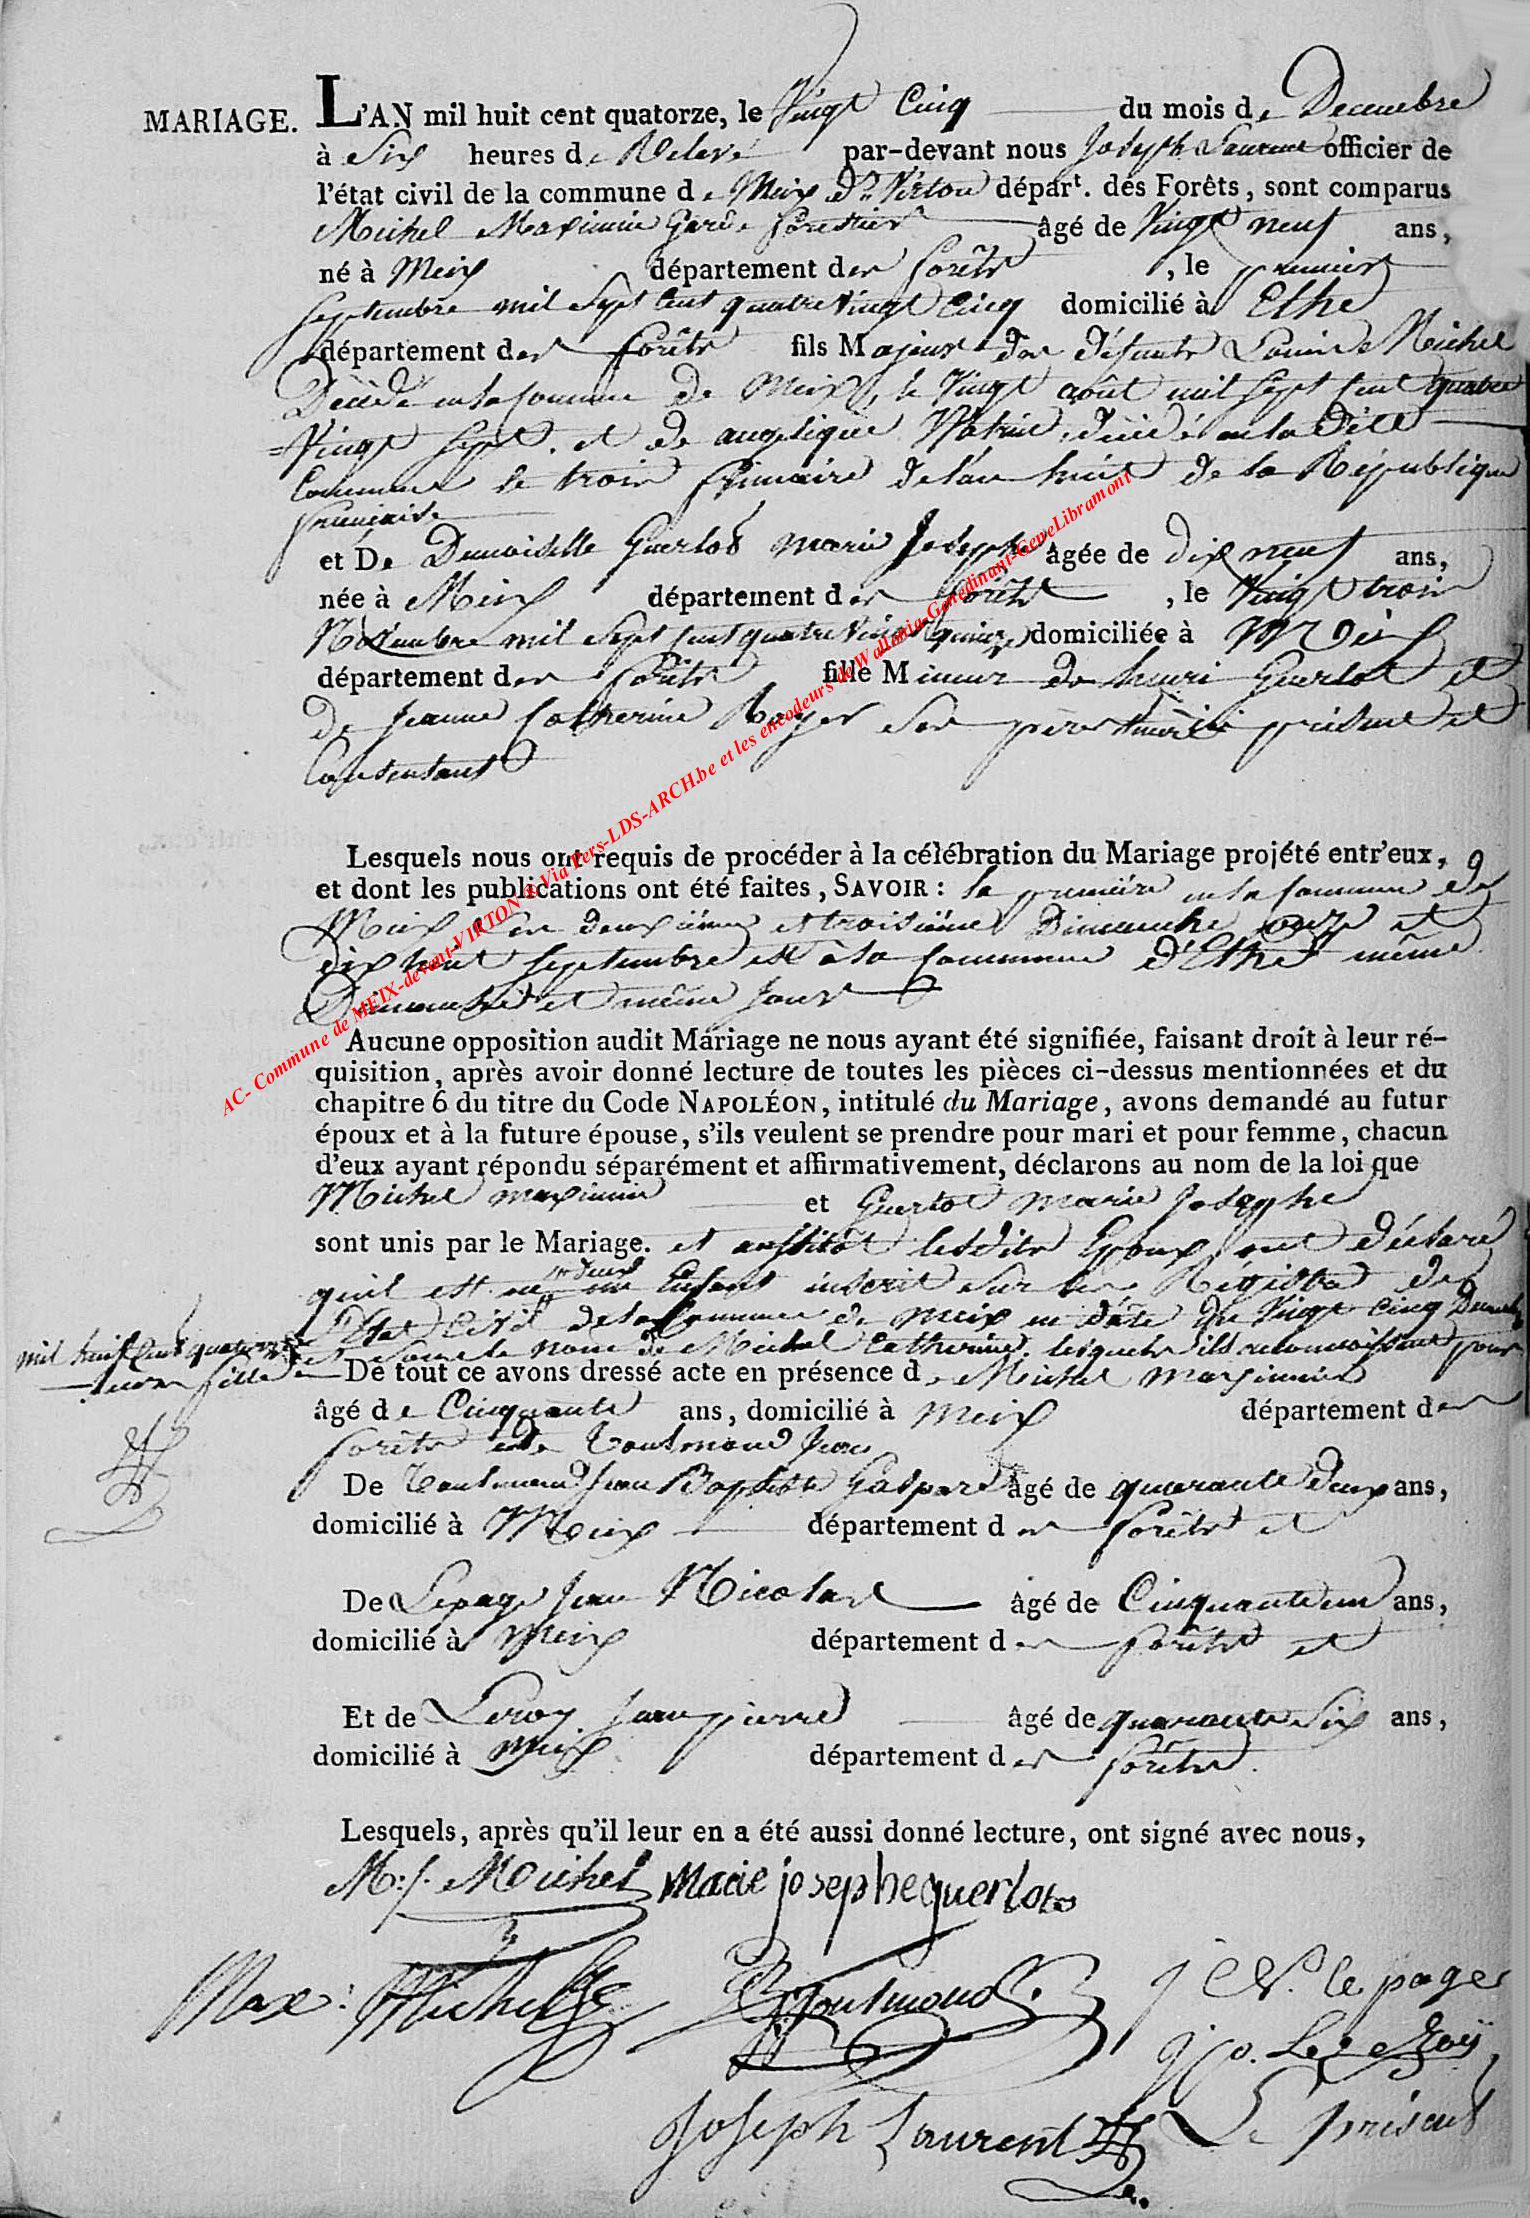 MARIAGE. L'AN mil huit cent quatorze, le Vingt Cinq du mois de Decembre
à Six heures de Relevé par-devant nous Joseph Laurent officier de
l'état civil de la commune de Meix Dt Virton départt. des Forêts, sont comparus
Michel Maximin Garde forestier âgé de Vingt neuf ans,
né à Meix département des forêts, le premier
Septembre mil Sept Cent quatre Vingt Cinq domicilié à Ethe
département des forêts fils Majeur des défunts Louis Michel
Décédé en la Commune de Meix, le Vingt août mil Sept Cent quatre
=Vingt Sept. et de angelique Watrin, décédée en la Dite
Commune le trois frimaire de l'an huit de la République
francaise
et De Demoiselle Guerlot marie Josephe âgée de dix neuf ans,
née à Meix département des forêts, le Vingt trois
Novembre mil Sept Cent quatre Vingt quinze domiciliée à Meix
département des forêts fille Mineur de henri Guerlot et
de Jeanne Catherine Royer Ses père et mère présent et
Consentant
Lesquels nous ont requis de procéder à la célébration du Mariage projété entr'eux,
et dont les publications ont été faites, SAVOIR: la première en la Commune de
Meix Les deuxième et troisième Dimanche onze et
dix huit Septembre et à la Commune d'Ethe même
Dimanche et même Jour
Aucune opposition audit Mariage ne nous ayant été signifiée, faisant droit à leur ré-
quisition, après avoir donné lecture de toutes les pièces ci-dessus mentionnées et du
chapitre 6 du titre du Code NAPOLÉON, intitulé du Mariage, avons demandé au futur
époux et à la future épouse, s'ils veulent se prendre pour mari et pour femme, chacun
d'eux ayant répondu séparément et affirmativement, déclarons au nom de la loi que
Michel maximin et Guerlot marie Josephe
sont unis par le Mariage. et aussitôt lesdits Epoux ont déclaré
quil est né d'eux un Enfant inscrit Sur les Régistres de
l'Etat Civil de la Commune de Meix en date du Vingt Cinq Decembre
mil huit Cent quatorze et sous le nom de Michel Catherine. lesquels ils reconnoissent pour
leur fille
De tout ce avons dressé acte en présence de Michel maximin
âgé de Cinquante ans, domicilié à Meix département des
forêts et de Toutmond Jean
De Toutmond Jean Baptiste Gaspard âgé de quarante deux ans,
domicilié à Meix département des forêts et
De Lepage Jean Nicolas âgé de Cinquante un ans,
domicilié à Meix département des forêts et
Et de Leroy Jean pierre âgé de quarante Six ans,
domicilié à Meix département des forêts.
Lesquels, après qu'il leur en a été aussi donné lecture, ont signé avec nous,
M: J. Michel Marie josephe querlot
Max: Michel Toutmond J N. le page
J p. Le Roÿ
Joseph Laurent
AC- Commune de MEIX-devant-VIRTON © Via Pers-LDS-ARCH.be et les encodeurs de Wallonia-Genedinant-GeneLibramont